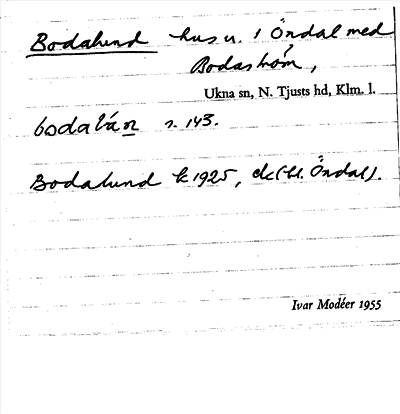 Bodalund hus u. 1 Öndal med
Bodaholm,
Ukna sn, N. Tjusts hd, Klm. l.
s. 143.
Bodalund k 1925, Öndal).
Ivar Modéer 1955